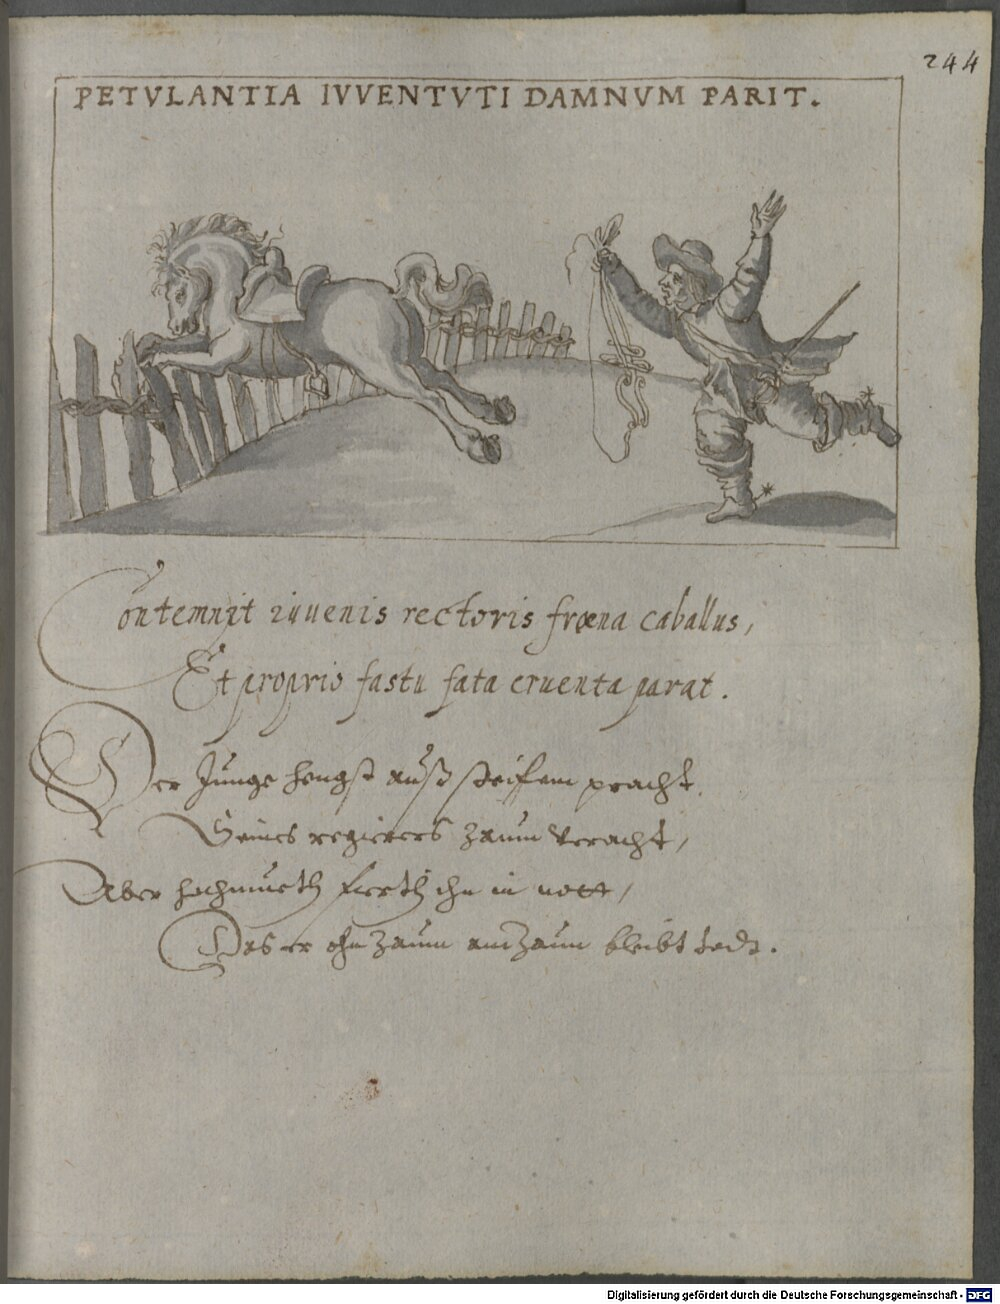 244
PETVLANTIA IVVENTVTI DAMNVM PARIT.
Contemnit iuuenis rectoris fræna caballus,
Et proprio fastu fata cruenta parat.
Der Junge hengst auß steifem pracht,
Seines regierers zaum veracht,
Aber hochmueth fierth ihn in nott,
Das er ohn zaum am zaun bleibt todt.
Digitalisierung gefördert durch die Deutsche Forschungsgemeinschaft - DFG